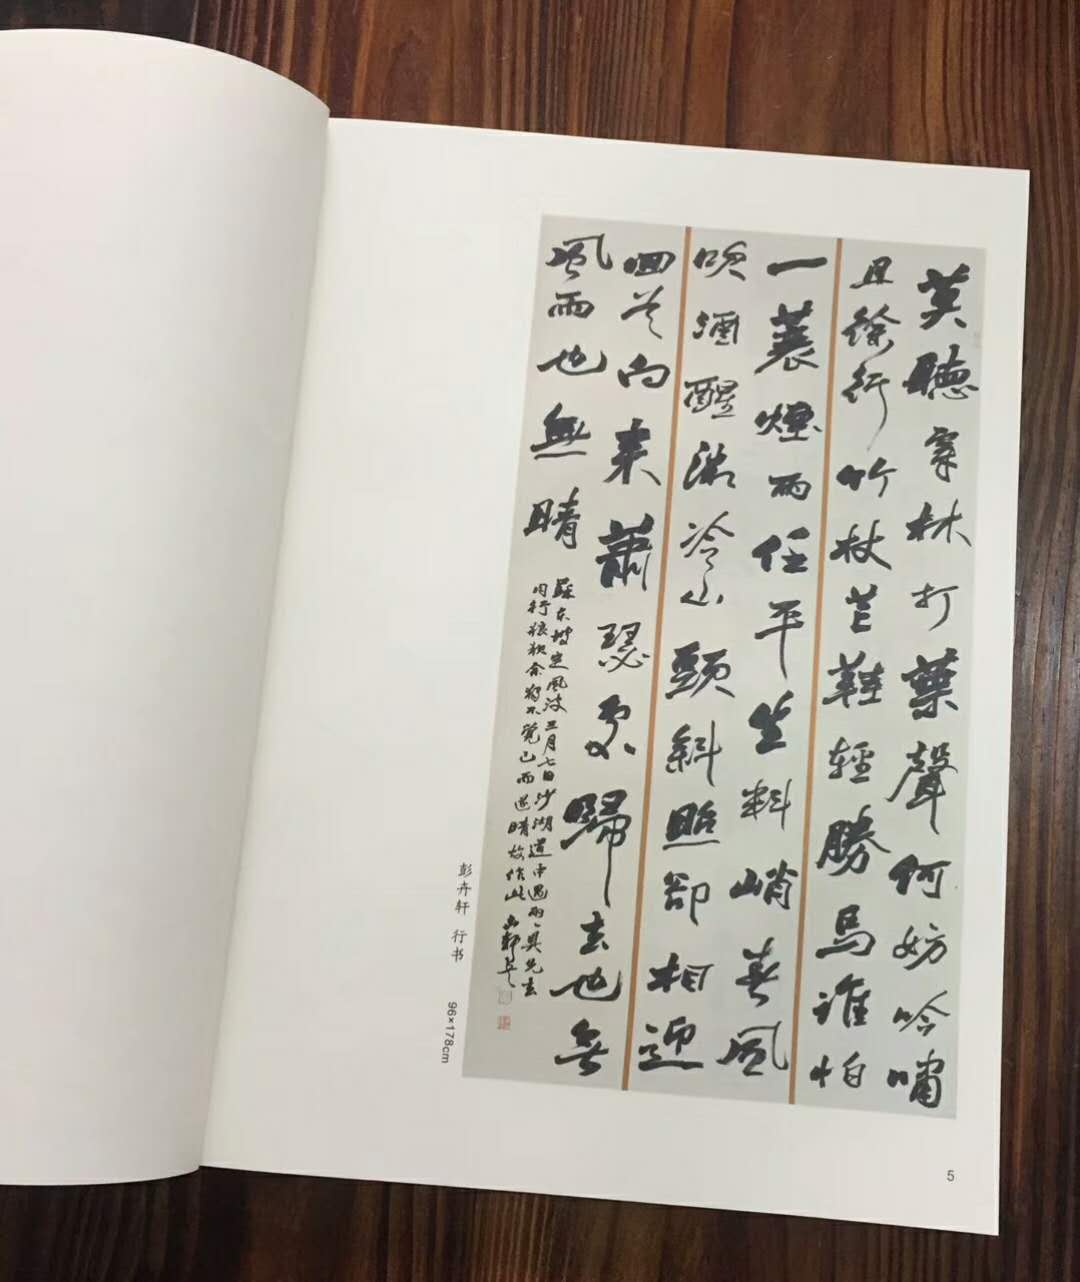 莫聽穿林打葉聲何妨吟嘯
且徐行竹杖芒鞋輕勝馬誰怕
一蓑煙雨任平生料峭春風
吹酒醒微冷山頭斜照卻相迎
回首向來蕭瑟處歸去也無
風雨也無晴
蘇東坡定風波三月七日沙湖道中遇雨々具先去
同行狼狽余獨不覺已而遂晴故作此
彭卉轩 行书 96×178cm
5